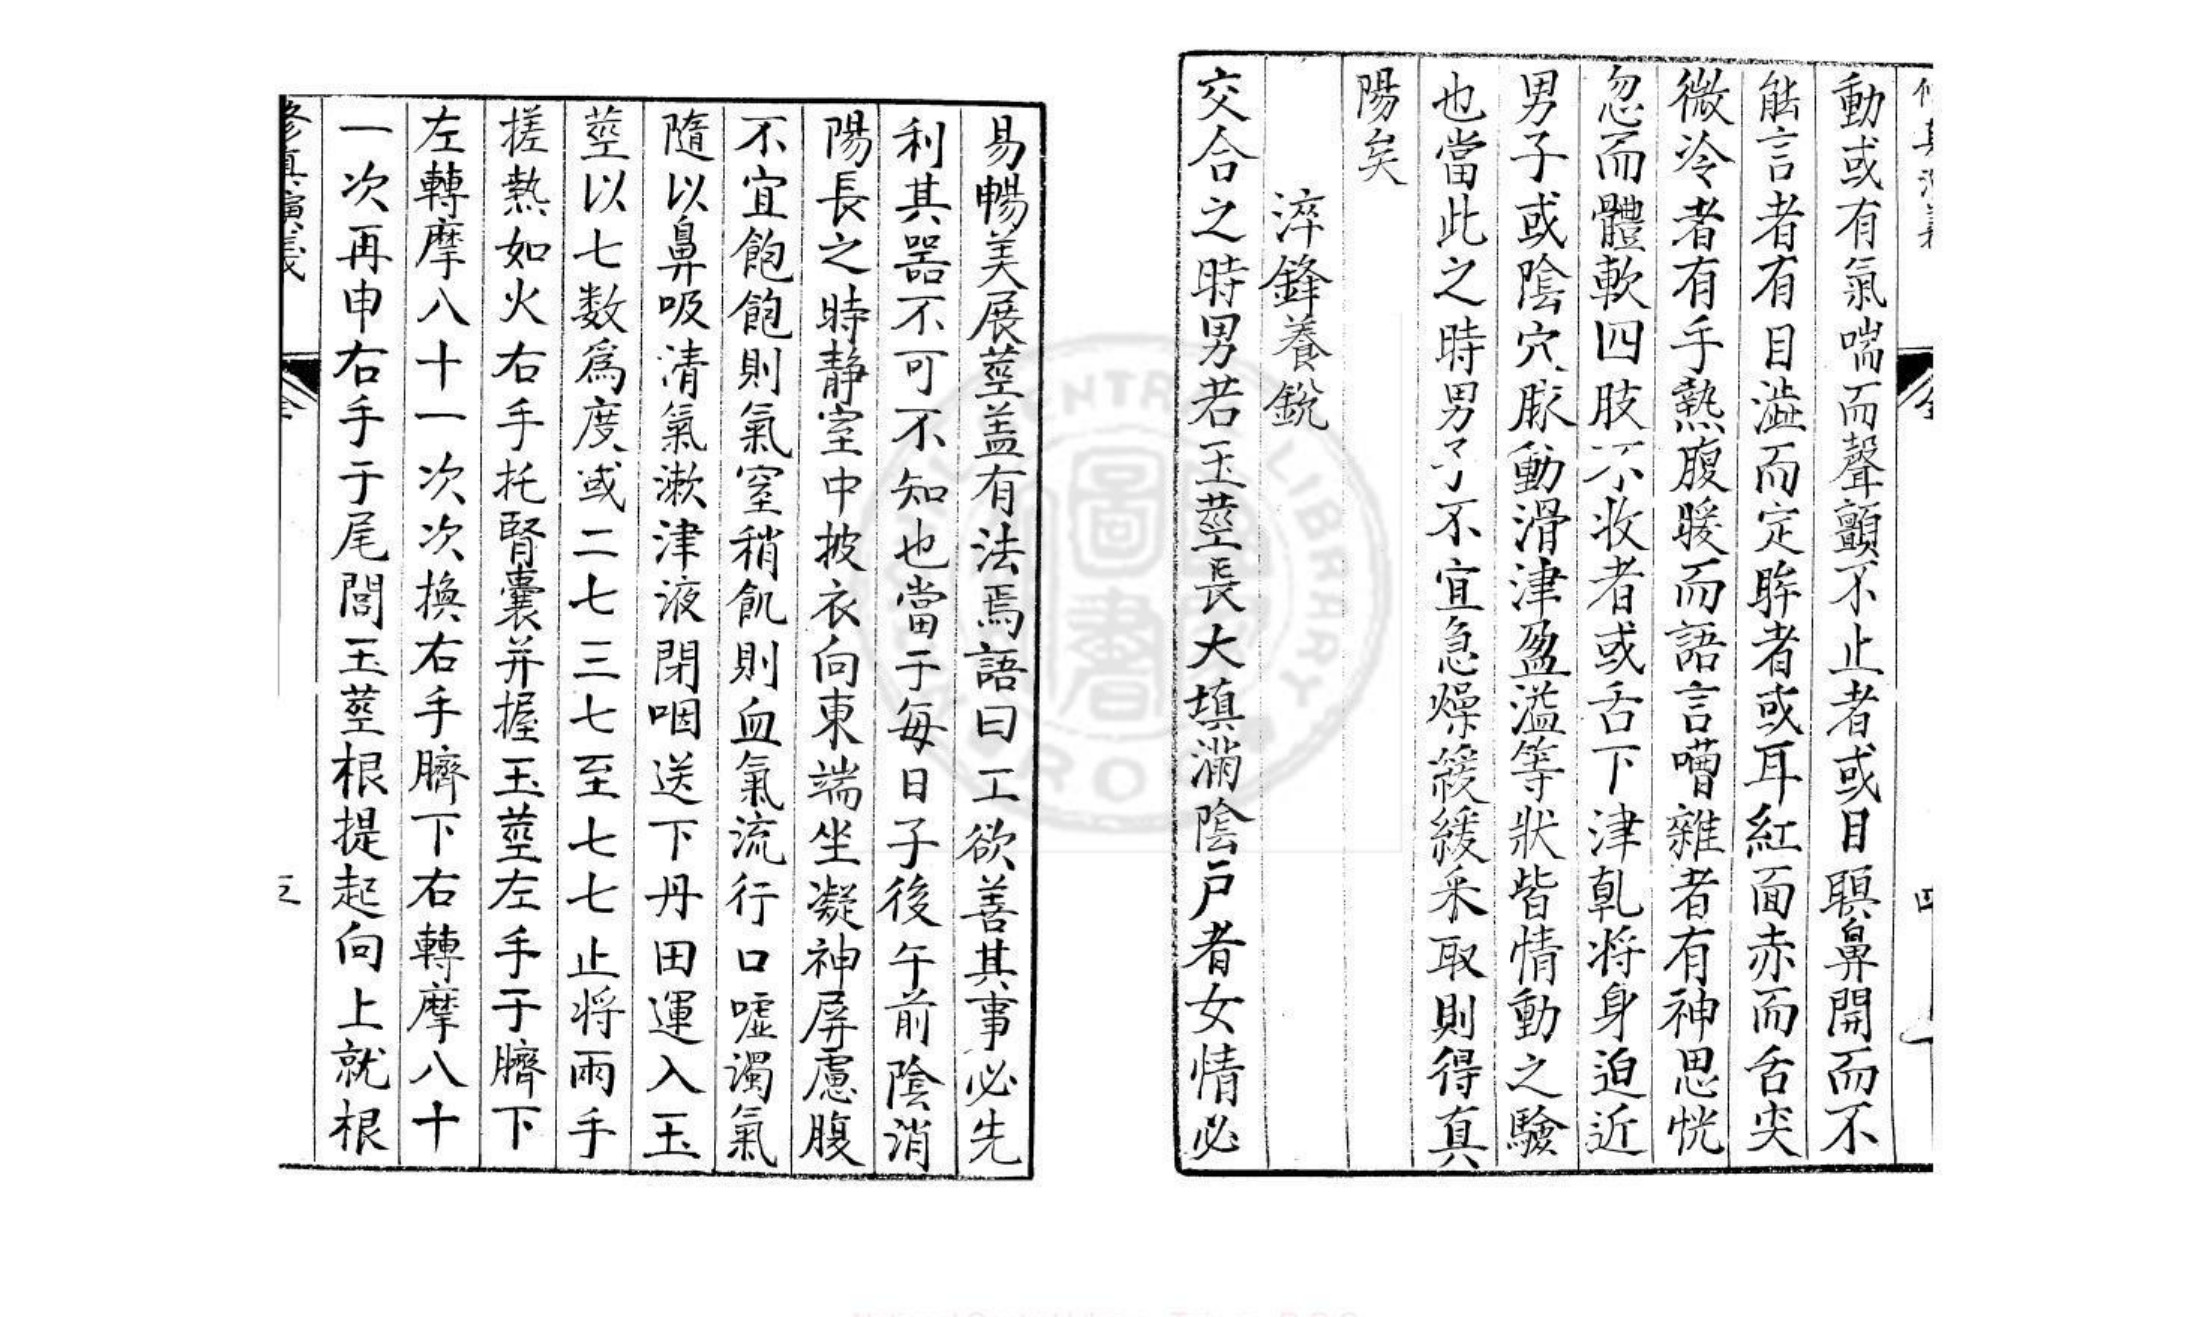 動或有氣喘而聲顫不止者或目瞑鼻開而不
能言者有目澁而定眸者或耳紅面赤而舌尖
微冷者有手熱腹暖而語言嘈雜者有神思恍
忽而體軟四肢不收者或舌下津乹将身迫近
男子或陰穴脉動滑津盈溢等狀皆情動之驗
也當此之時男子不宜急燥緩緩采取則得真
陽矣
淬鋒養銳
交合之時男若玉莖長大填滿陰戶者女情必
易暢美展莖盖有法焉語曰工欲善其事必先
利其噐不可不知也當于每日子後午前陰消
陽長之時静室中披衣向東端坐凝神屏慮腹
不宜飽飽則氣窒稍飢則血氣流行口嘘濁氣
隨以鼻吸清氣漱津液閉咽送下丹田運入玉
莖以七数爲度或二七三七至七七止将兩手
搓熱如火右手托腎囊并握玉莖左手于臍下
左轉摩八十一次次換右手臍下右轉摩八十
一次再申右手于尾閭玉莖根提起向上就根
修真演義
CENTRAL LIBRARY
圖書
R O C